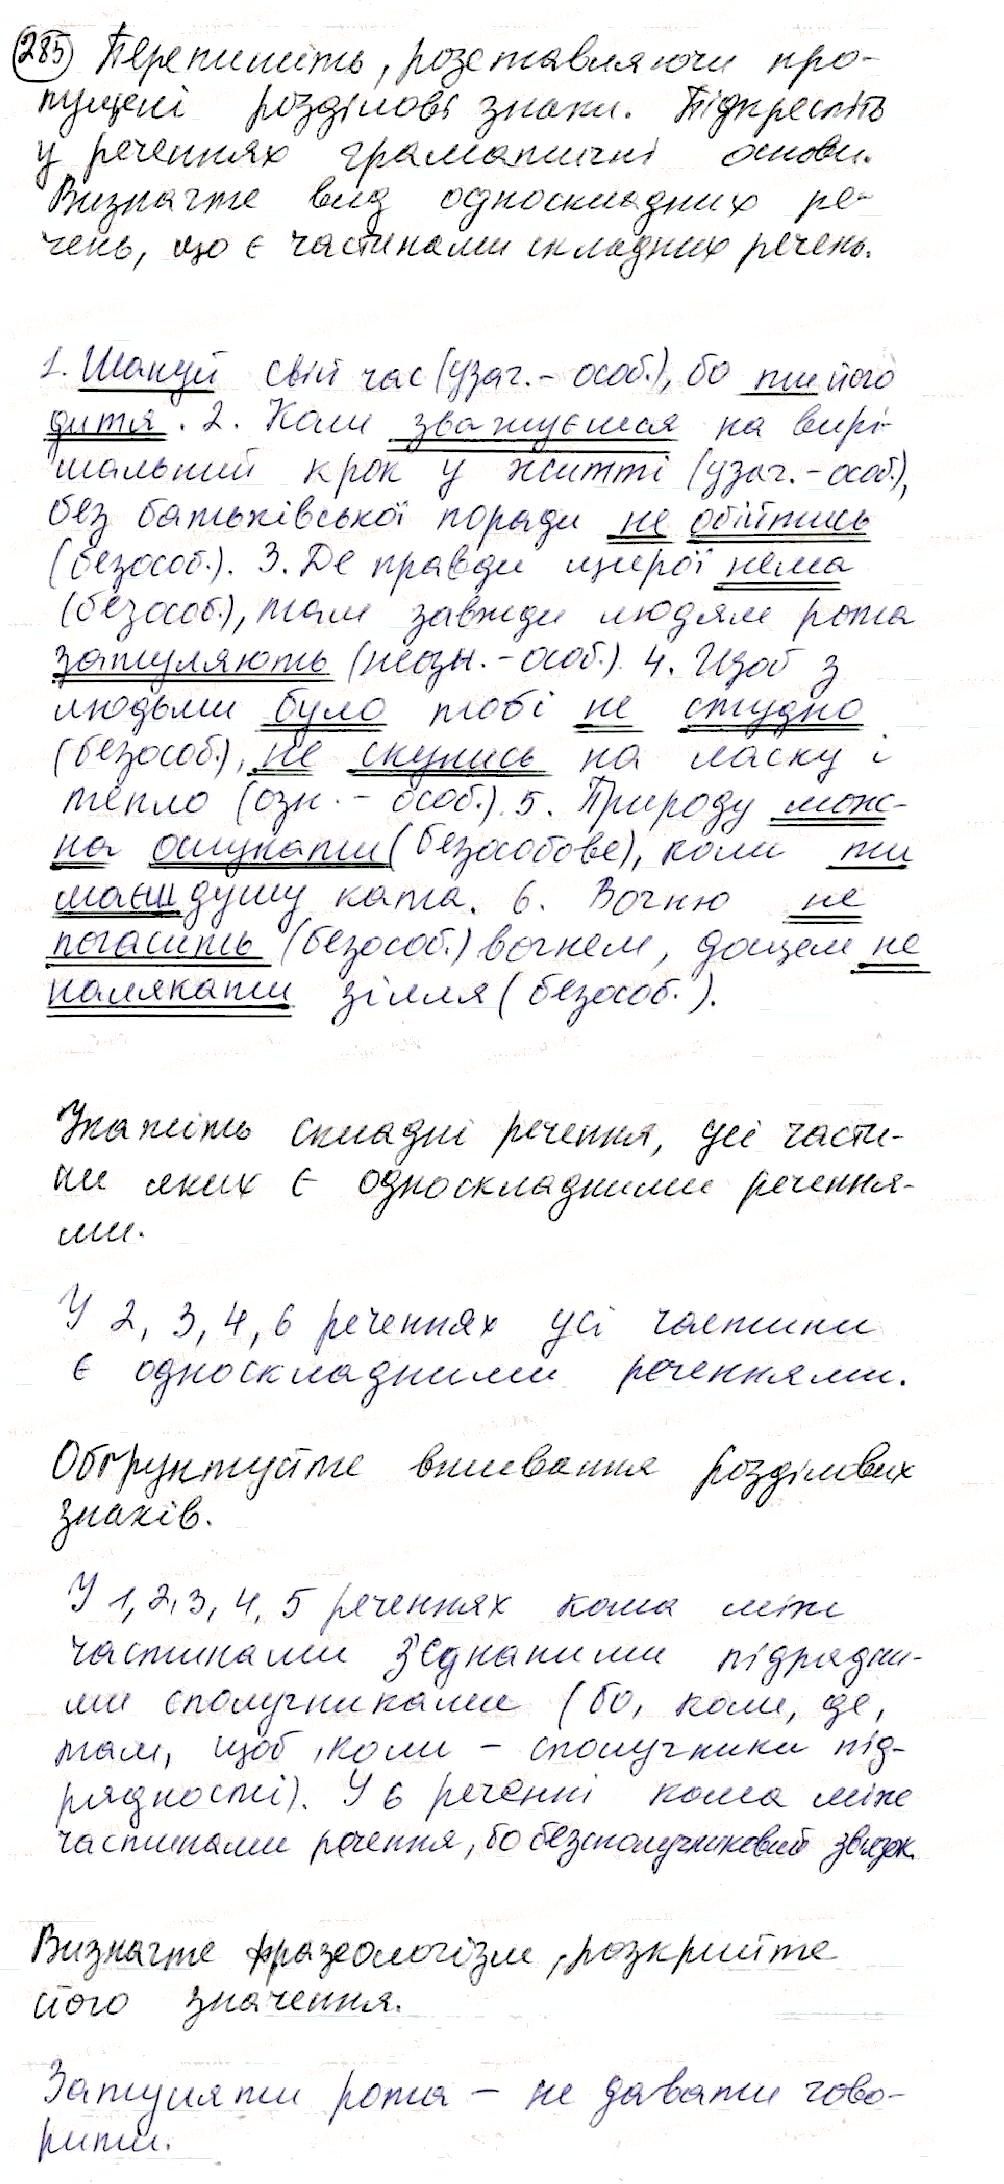 285 Перепишіть, розставляючи про-
пущені розділові знаки. Підкресліть
у реченнях граматичні основи.
Визначте вид односкладних ре-
чень, що є частинами складних речень.
1. Шануй свій час (узаг.- особ.), бо ти його
дитя. 2. Коли зважуєшся на вирі-
шальний крок у житті (узаг.- особ.),
без батьківської поради не обійтись
(безособ.). 3. Де правди щирої нема
(безособ.), там завжди людям рота
затуляють (неозн.- особ.). 4. Щоб з
людьми було тобі не студно
(безособ.), не скупись на ласку і
тепло (озн.- особ.). 5. Природу мож-
на ошукати (безособове), коли ти
маєш душу ката. 6. Вогню не
погасить (безособ.) вогнем, дощем не
налякати зілля (безособ.).
Укажіть складні речення, усі части-
ни яких є односкладними речення-
ми.
У 2, 3, 4, 6 реченнях усі частини
є односкладними реченнями.
Обґрунтуйте вживання розділових
знаків.
У 1, 2, 3, 4, 5 реченнях кома між
частинами з'єднаними підрядни-
ми сполучниками (бо, коли, де,
там, щоб, коли - сполучники під-
рядності). У 6 реченні кома між
частинами речення, бо безсполучниковий зв'язок.
Визначте фразеологізм, розкрийте
його значення.
Затуляти рота - не давати гово-
рити.